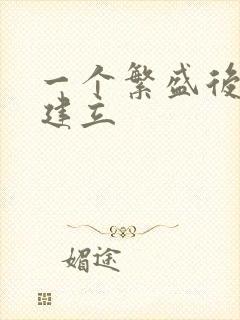 一个繁盛後
建立
媚途